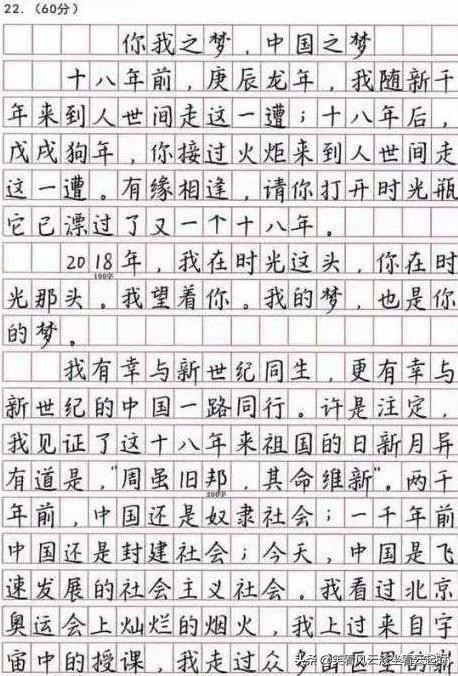 22.（60分）
你我之梦，中国之梦
十八年前，庚辰龙年，我随新千
年来到人世间走这一遭；十八年后，
戊戌狗年，你接过火炬来到人世间走
这一遭。有缘相逢，请你打开时光瓶
它已漂过了又一个十八年。
2018年，我在时光这头，你在时
100字
光那头。我望着你。我的梦，也是你
的梦。
我有幸与新世纪同生，更有幸与
新世纪的中国一路同行。许是注定，
我见证了这十八年来祖国的日新月异
有道是，“周虽旧邦，其命维新”。两千
200字
年前，中国还是奴隶社会；一千年前
中国还是封建社会；今天，中国是飞
速发展的社会主义社会。我看过北京
奥运会上灿烂的烟火，我上过来自宇
宙中的授课，我走过众多山区里的新
头条@笑看风云